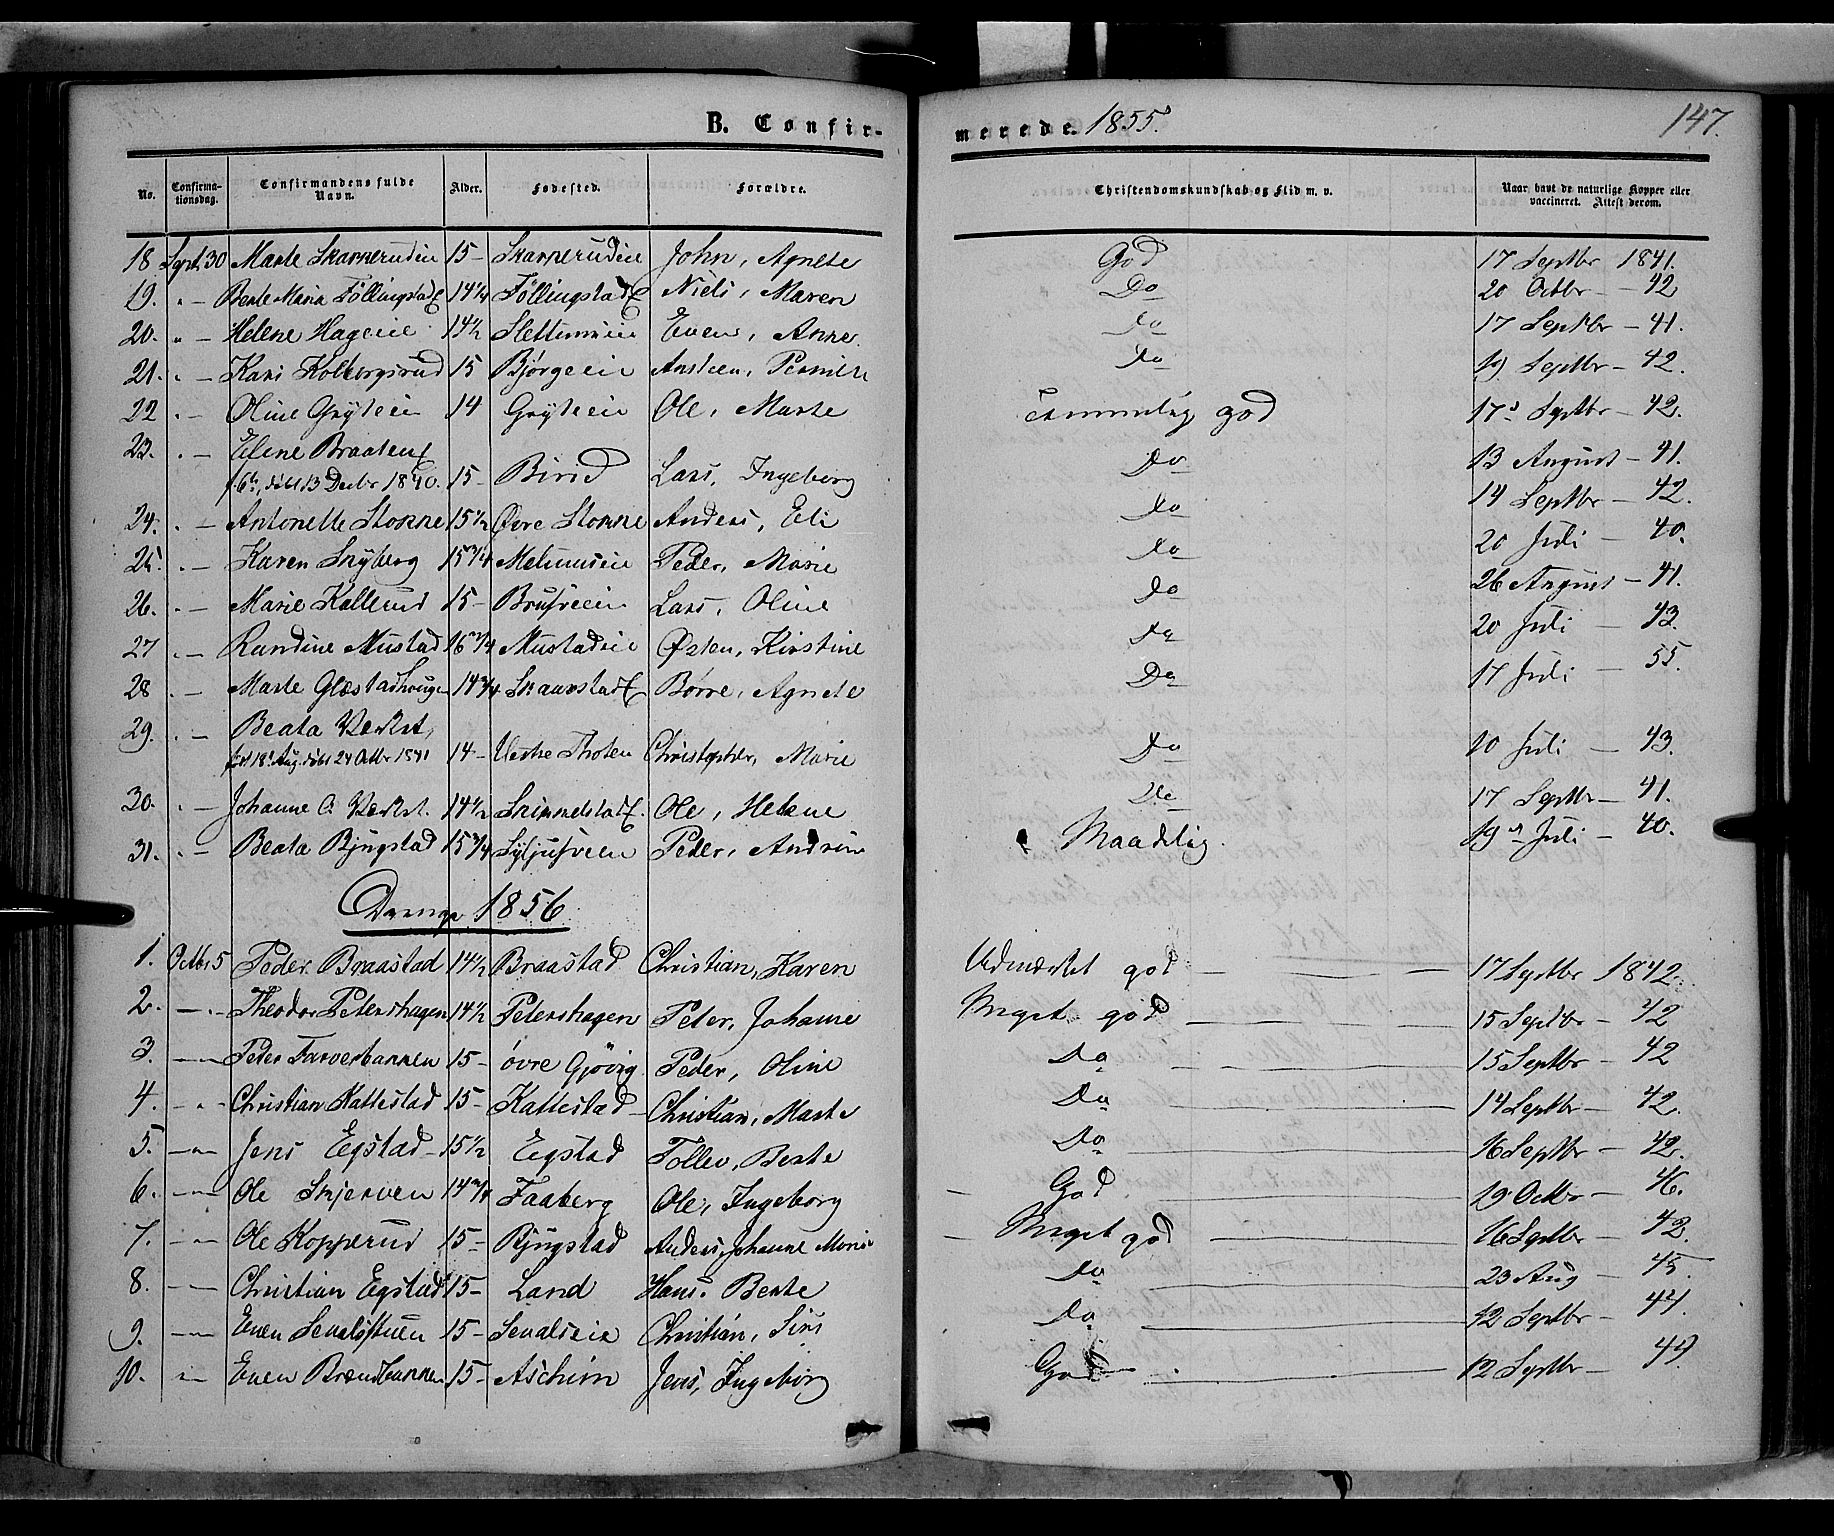 B. Confir-
merede. 1855.
147.
No. Confirma-tionsdag. Confirmandens fulde Navn. Alder. Fødested. Forældre. Christendomskundskab og Flid m. v. Naar havt de naturlige Kopper eller vaccineret. Attest derom.
18 Sept. 30 Marte Skarrerudeie 15- Skarrerudeie John, Agnete God 17 Septbr 1841.
19. " - Berte Maria Föllingstad 14 1/4 Föllingstad Niels, Maren Do 20 Octbr - 42
20. " - Helene Hageeie 14 1/2 Slettumeie Even, Anne. Do 17 Septbr - 41.
21. " - Kari Kolbergsrud 15 Bjørgeeie Ansteen, Pernille Do 19 Septbr - 42.
22 " - Oline Gryteeie 14 Gryteeie Ole, Marte Temmelig god 17 Septbr - 42.
23. " - Eline Braaten
døbt 13 Decbr 1840. 15- Birid Lars, Ingeborg Do 13 August - 41.
24. " - Antonette Stokne 15 1/2 Øvre Stokne Anders, Eli Do 14 Septbr - 42.
25. " - Karen Snyberg 15 3/4 Melumseie Peder, Marie Do 20 Juli - 40.
26. " - Marie Kallerud 15- Brusveeie Lars, Oline Do 26 August - 41.
27 " - Randine Mustad 16 3/4 Mustadeie Østen, Kirstine Do 20 Juli - 43.
28 " - Marte Glæstadhouge 14 3/4 Skaarstad Børre, Agnete Do 17 Juli - 55.
29. " - Beata Værkst,
fød 18 Aug. døbt 24 Octbr 1841 14- Vestre Thoten Christopher, Marie Do 10 Juli - 43.
30. " - Johanne O. Værkst. 14 1/2 Skimmelstad Ole, Helene Do 17 Septbr - 41.
31. " - Beata Bjugstad 15 3/4 Syljusveen Peder, Andrine Maadelig. 19 Juli - 40.
Drenge 1856
1. Octbr 5 Peder Braastad 14 1/2 Braastad Christian, Karen Udmærket god - 17 Septbr 1842.
2. - " - Theodor Petershagen 14 1/2 Petershagen Peter, Johanne Meget god - 15 Septbr - 42
3. - " - Peder Farverbakken 15- øvre Gjövig Peder, Oline Do - 15 Septbr - 42
4. - " - Christian Kattestad 15- Kattestad Christian, Marte Do - 14 Septbr - 42.
5. - " - Jens Egstad - 15 1/2 Egstad Tollev, Berte Do - 16 Septbr - 42.
6. - " - Ole Skjerven 14 3/4 Faaberg Ole, Ingeborg God - 19 Octbr - 46.
7. - " - Ole Kopperud 15- Bjugstad Anders, Johanne Marie Meget god - 16 Septbr - 42.
8. - " - Christian Egstad 15- Land Hans. Berte Do - 23 Aug - 45.
9. - " - Even Sevalsstuen 15- Sevalseie Christian, Siri Do - 12 Septbr - 44.
10. " - Even Brændbakken 15- Aschim Jens, Ingeborg God - 12 Septbr - 44